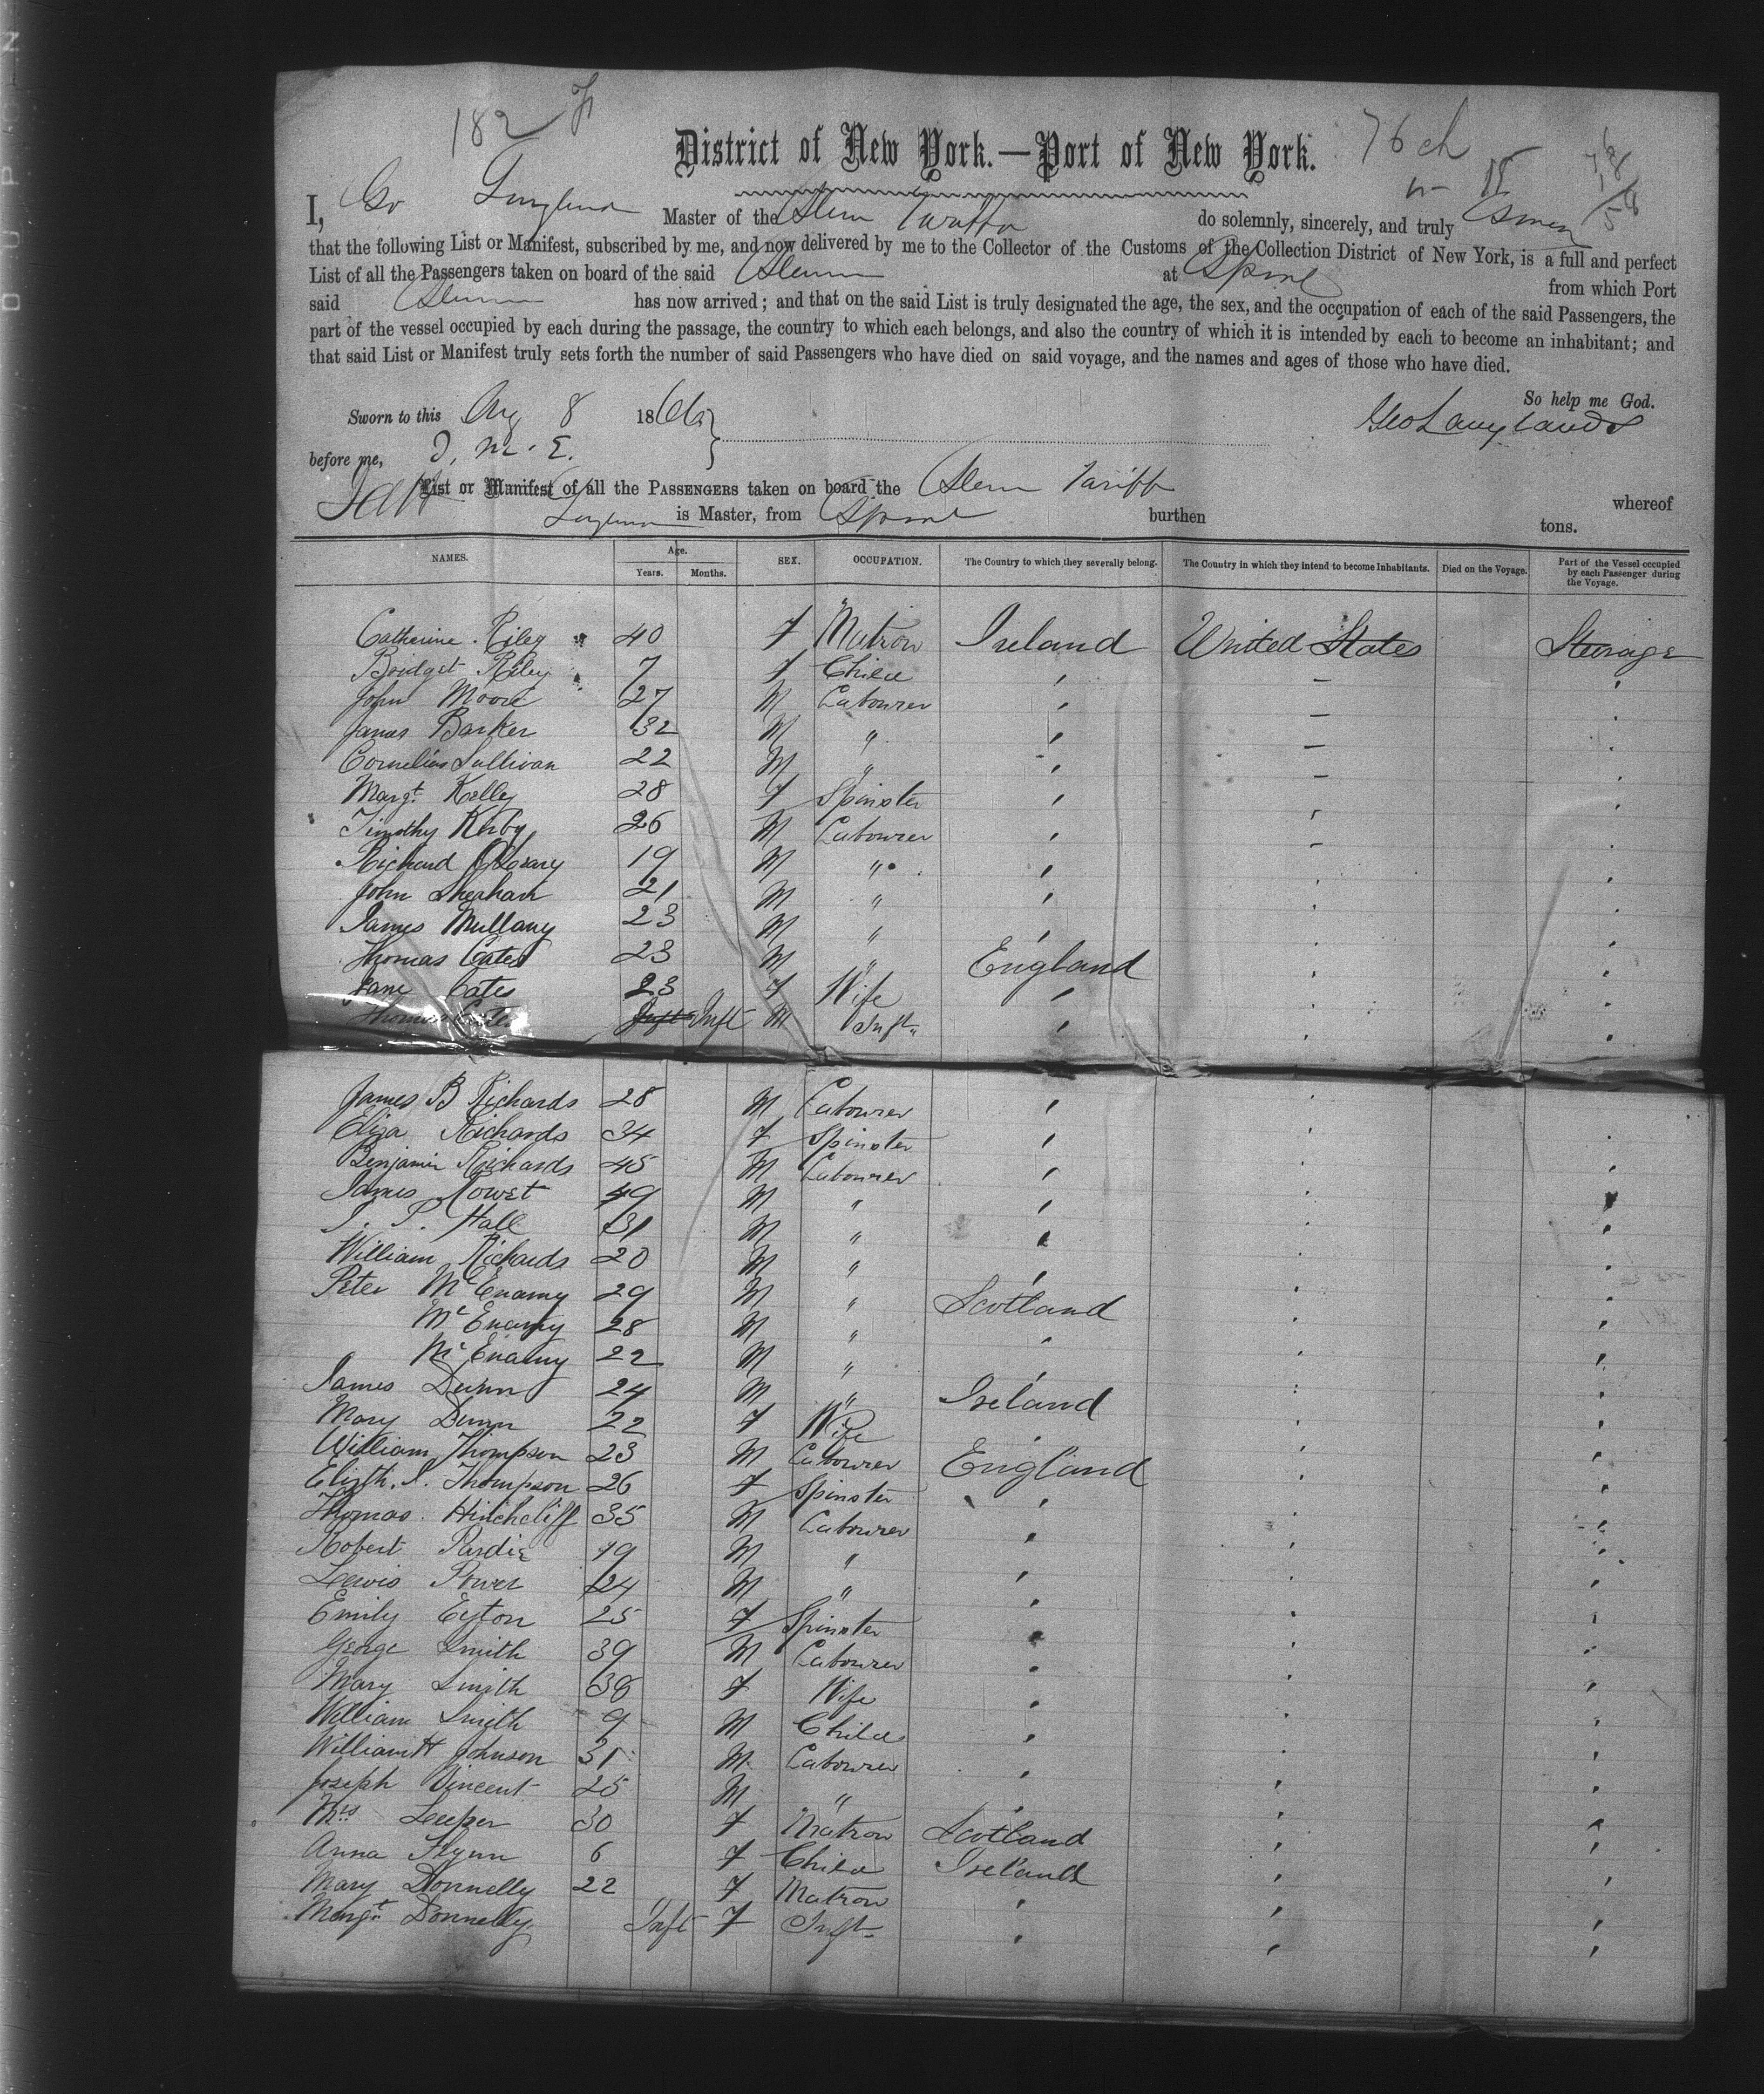 182
District of New York.—Port of New York.
76 ch
I, Master of the do solemnly, sincerely, and truly
that the following List or Manifest, subscribed by me, and now delivered by me to the Collector of the Customs of the Collection District of New York, is a full and perfect
List of all the Passengers taken on board of the said at from which Port
said has now arrived; and that on the said List is truly designated the age, the sex, and the occupation of each of the said Passengers, the
part of the vessel occupied by each during the passage, the country to which each belongs, and also the country of which it is intended by each to become an inhabitant; and
that said List or Manifest truly sets forth the number of said Passengers who have died on said voyage, and the names and ages of those who have died.
So help me God.
Sworn to this Aug 8 1866
Geo Langlands
before me,
List or Manifest of all the PASSENGERS taken on board the Tariffa whereof
is Master, from burthen tons.
NAMES. Age. Years. Months. SEX. OCCUPATION. The Country to which they severally belong. The Country in which they intend to become Inhabitants. Died on the Voyage. Part of the Vessel occupied by each Passenger during the Voyage.
Catherine Riley 40 F Matron Ireland United States Steerage
Bridget Riley 7 F Child
John Moore 27 M Labourer
James Barker 32 M "
Cornelius Sullivan 22 M "
Margt. Kelley 28 F Spinster
Timothy Kirby 26 M Labourer
Richard OLeary 19 M "
John Sheahan 21 M "
James Mullany 23 M "
Thomas Cates 23 M " England
Jane Cates 23 F Wife
Thomas Cates Inft Inft M Inft
James B Richards 28 M Labourer
Eliza Richards 34 F Spinster
Benjamin Richards 45 M Labourer
James Rowet 49 M "
Hall 31 M "
William Richards 20 M "
Peter McEnamy 29 M " Scotland
McEnamy 28 M "
McEnamy 22 M "
James Dunn 24 M " Ireland
Mary Dunn 22 F Wife
William Thompson 23 M Labourer England
Elizth. Thompson 26 F Spinster
Thomas Hinchcliff 35 M Labourer
Robert Pardie 19 M "
Lewis Power 24 M "
Emily Eyton 25 F Spinster
George Smith 39 M Labourer
Mary Smith 38 F Wife
William Smith 9 M Child
William H Johnson 31 M Labourer
Joseph Vincent 25 M "
Mrs Leeper 30 F Matron Scotland
Anna Flynn 6 F Child Ireland
Mary Donnelly 22 F Matron
Margt. Donnelly Inft F Inft